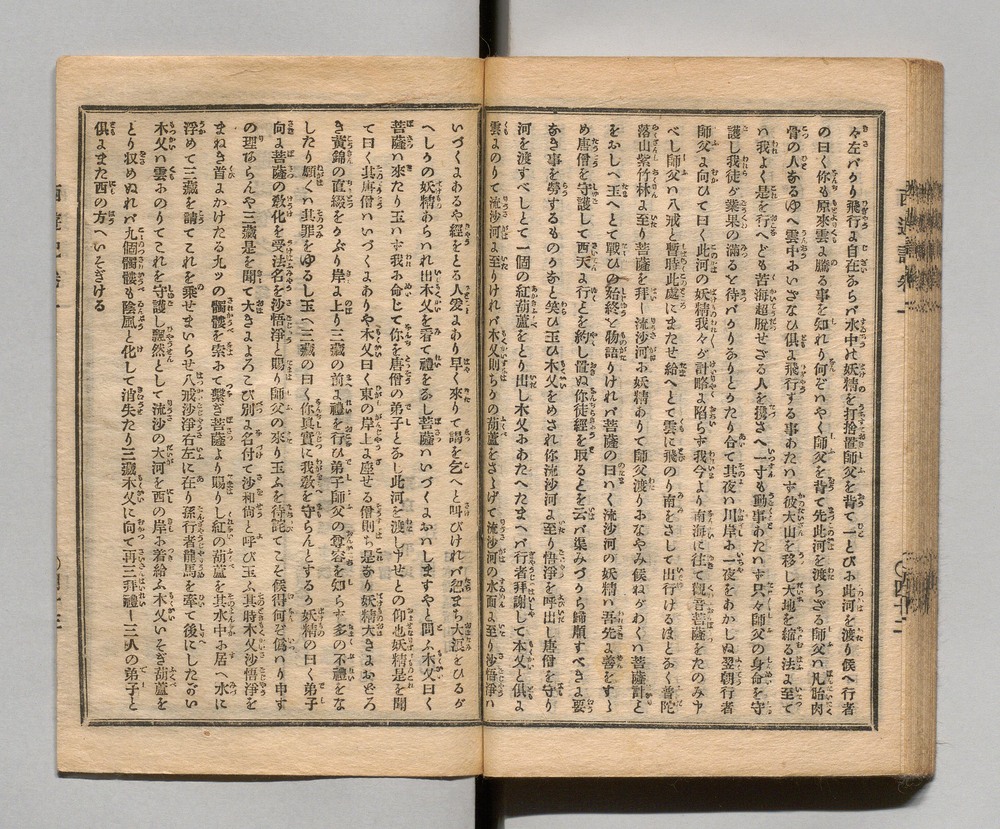 々左バかり飛行に自在ならバ水中の妖精を打捨置師父を背て一とびに此河を渡り候へ行者
の曰く你も原來雲に騰る事を知れり何ぞはやく師父を背て先此河を渡らざる師父ハ凡胎肉
骨の人なるゆへ雲中にいざなひ俱に飛行する事あたハず彼大山を移し大地を縮る法に至て
ハ我よく是を行へども苦海超脱せざる人を携さへ一寸も動事あたハず只々師父の身命を守
護し我徒が業果の滿るを待バかりありとかたり合て其夜ハ川岸に一夜をあかしぬ翌朝行者
師父に向ひて曰く此河の妖精我々が計略に陷らず我今より南海に往て觀音菩薩をたのみ申
べし師父ハ八戒と暫時此處にまたせ給へとて雲に飛のり南をさして出行けるほどなく普陀
落山紫竹林に至り菩薩を拜し流沙河に妖精ありて師父渡りなやみ候ねがわくハ菩薩計と
をおしへ玉へとて戰ひの始終を物語りけれバ菩薩の曰ハく流沙河の妖精ハ吾先に善をすゝ
め唐僧を守護して西天に行とを約し置ぬ你徒經を取るとを云バ渠みづから歸順すべきに要
なき事を勞するものかなと笑ひ玉ひ木父をめされ你流沙河に至り沙悟淨を呼出し唐僧を守り
河を渡すべしとて一個の紅葫蘆をとり出し木父にあたへたまへバ行者拜謝して木父と俱に
雲にのりて流沙河に至りけれバ木父則ちかの葫蘆をさゝげて流沙河の水面に至り沙悟淨ハ
いづくにあるや經をとる人爰にあり早く來りて謁を乞へと叫びけれバ忽まち大浪をひるが
へしかの妖精あらハれ出木父を看て禮をなし菩薩ハいづくにおハしますやと問ふ木父曰く
菩薩ハ來たり玉ハず我に命じて你を唐僧の弟子となし此河を渡し申せとの仰也妖精是を聞
て曰く其唐僧ハいづくにありや木父曰く東の岸上に座せる僧則ち是なり妖精大きにおどろ
き黄錦の直綴をかぶり岸に上り三藏の前に禮を行ひ弟子師父の尊容を知らず多の不禮をな
したり願くハ其罪をゆるし玉へ三藏の曰く你眞實に我敎を守らんとするか妖精の曰く弟子
向に菩薩の敎化を受法名を沙悟淨と賜り師父の來り玉ふを待詫てこそ候得何ぞ僞ハり申す
の理あらんや三藏是を聞て大きによろこび別に名付て沙和尚と呼び玉ふ其時木父沙悟淨を
まねき首にかけたる九ツの髑髏を索にて繋ぎ菩薩より賜りし紅の葫蘆を其水中に居へ水に
浮めて三藏を請てこれを乘せまいらせ八戒沙淨右左に在り孫行者龍馬を牽て後にしたがい
木父ハ雲にのりてこれを守護し飄然として流沙の大河を西の岸に着給ふ木父いそぎ葫蘆を
とり收めぬれバ九個髑髏も陰風と化して消失たり三藏木父に向て再三拜禮し三人の弟子と
俱にまた西の方へいそぎける